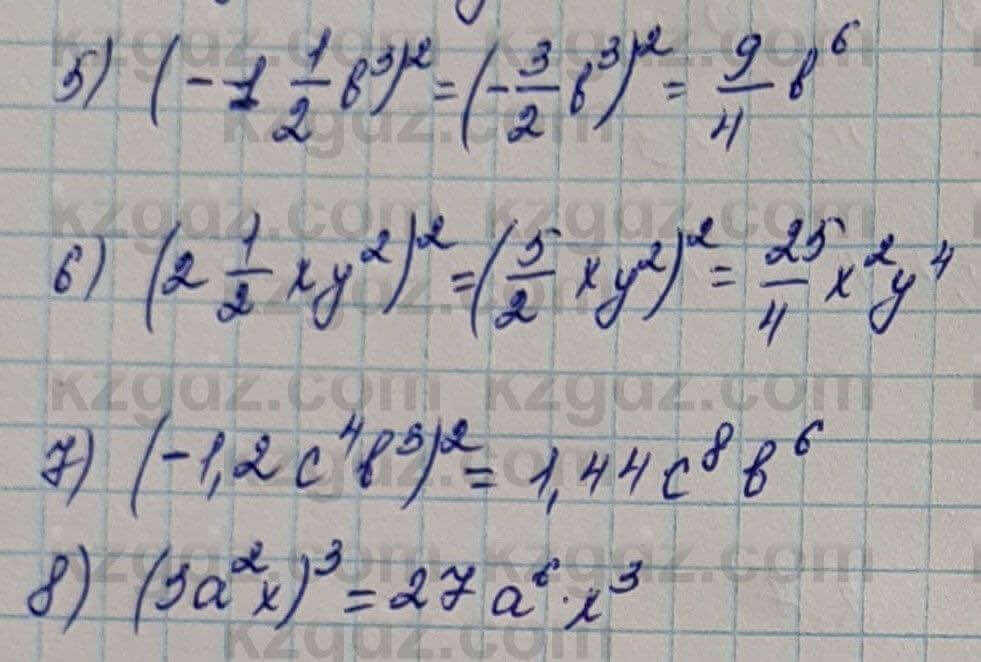 5) (-1 1/2 b³)² = (-3/2 b³)² = 9/4 b⁶
6) (2 1/2 xy²)² = (5/2 xy²)² = 25/4 x²y⁴
7) (-1,2 c⁴b³)² = 1,44 c⁸ b⁶
8) (3a²x)³ = 27 a⁶ · x³
kzgdz.com